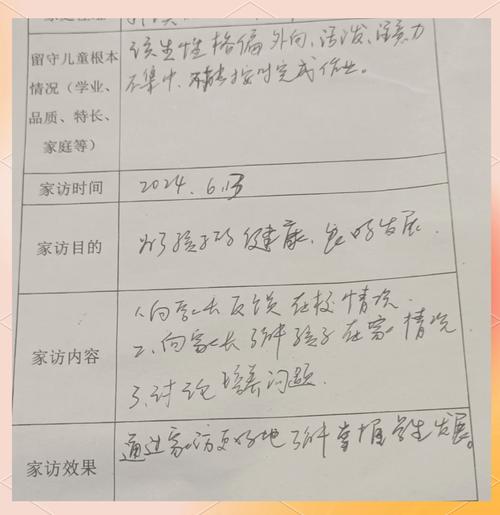 留守儿童根本
情况（学业、
品质、特长、
家庭等）
该生性格偏外向、活泼、注意力
不集中、不能按时完成作业。
家访时间
2024.6.13
家访目的
为了孩子的健康、良好发展.
家访内容
1.向家长反馈在校情况.
2.向家长了解孩子在家情况
3.讨论培养问题.
家访效果
通过家访更好地了解掌握学生发展。